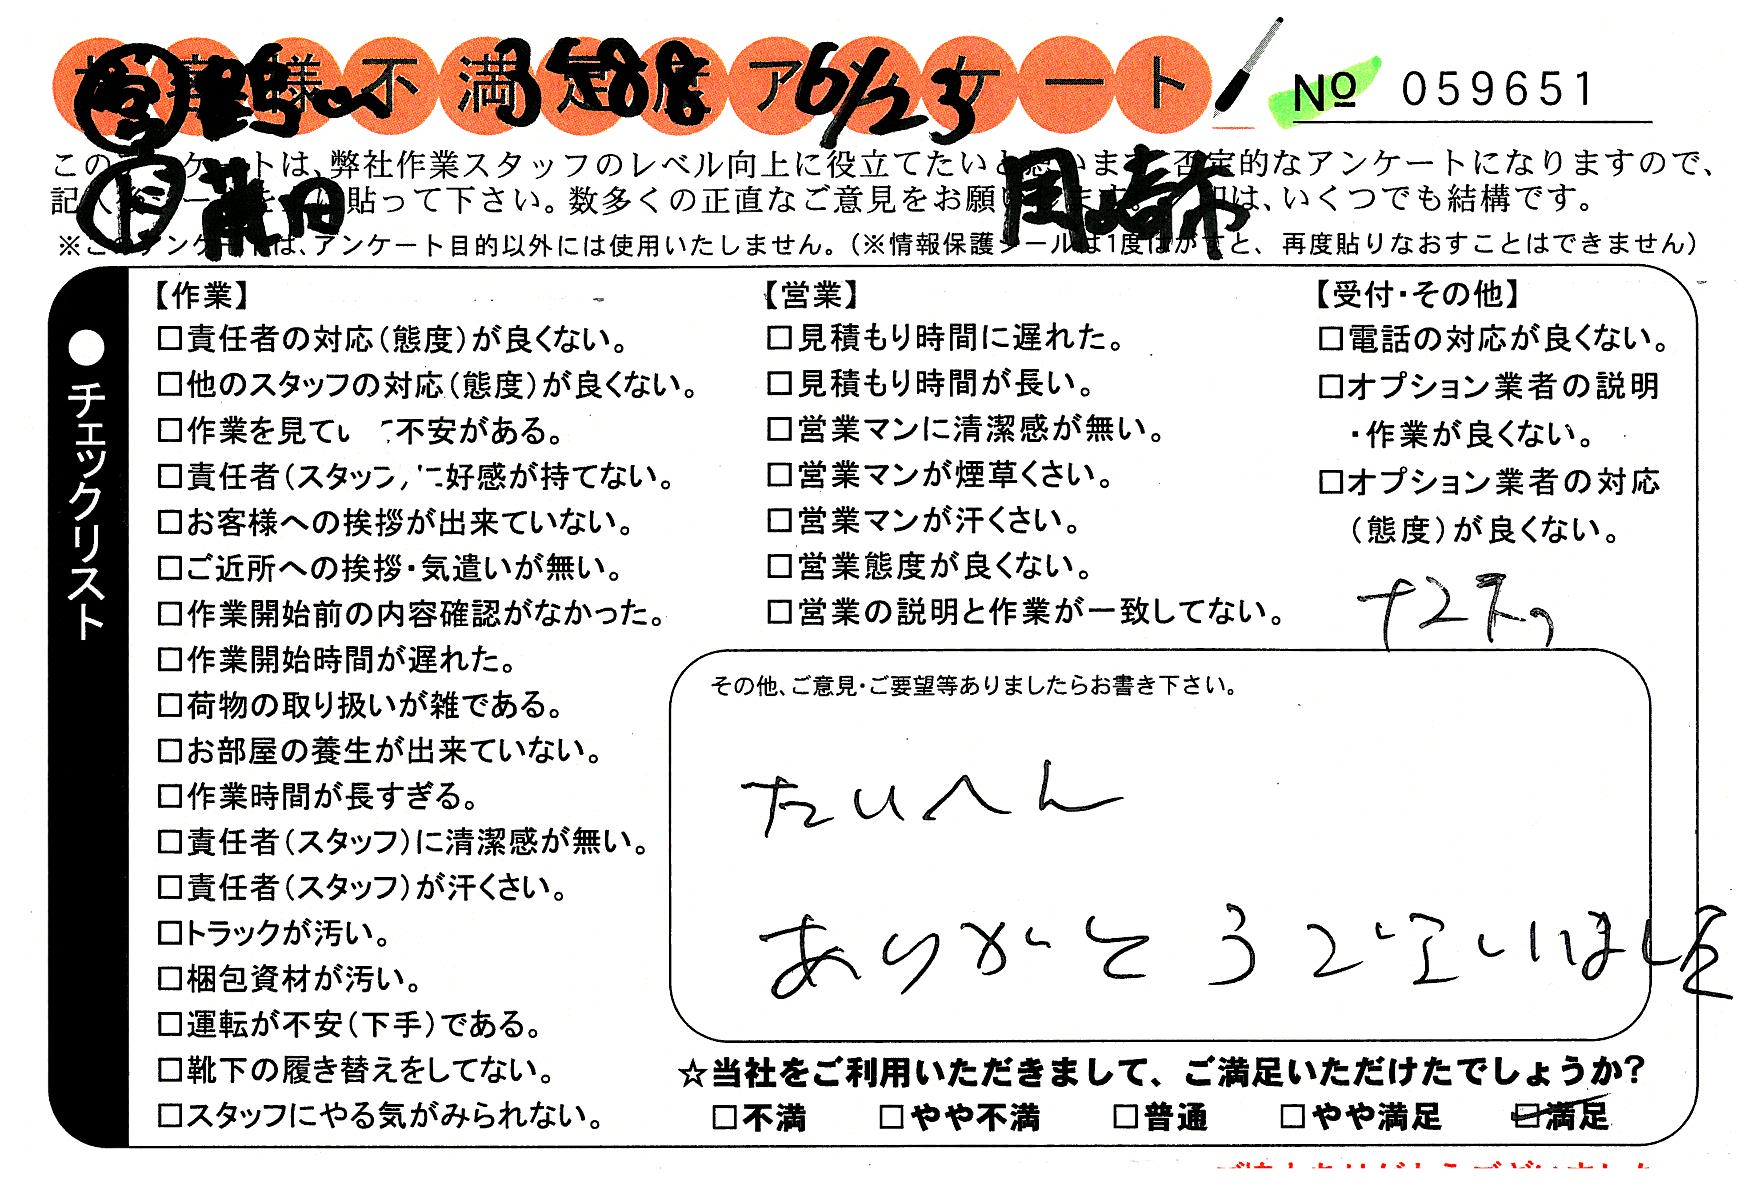 お客様不満足度アンケート 3588 6/23 № 059651
このアンケートは、弊社作業スタッフのレベル向上に役立てたいと思います。否定的なアンケートになりますので、
貼って下さい。数多くの正直なご意見をお願いします。 は、いくつでも結構です。
岡崎市
※このアンケートは、アンケート目的以外には使用いたしません。(※情報保護シールは1度はがすと、再度貼りなおすことはできません)
●チェックリスト
【作業】
□責任者の対応(態度)が良くない。
□他のスタッフの対応(態度)が良くない。
□作業を見てい 不安がある。
□責任者(スタッフ)に好感が持てない。
□お客様への挨拶が出来ていない。
□ご近所への挨拶・気遣いが無い。
□作業開始前の内容確認がなかった。
□作業開始時間が遅れた。
□荷物の取り扱いが雑である。
□お部屋の養生が出来ていない。
□作業時間が長すぎる。
□責任者(スタッフ)に清潔感が無い。
□責任者(スタッフ)が汗くさい。
□トラックが汚い。
□梱包資材が汚い。
□運転が不安(下手)である。
□靴下の履き替えをしてない。
□スタッフにやる気がみられない。
【営業】
□見積もり時間に遅れた。
□見積もり時間が長い。
□営業マンに清潔感が無い。
□営業マンが煙草くさい。
□営業マンが汗くさい。
□営業態度が良くない。
□営業の説明と作業が一致してない。
【受付・その他】
□電話の対応が良くない。
□オプション業者の説明
・作業が良くない。
□オプション業者の対応
(態度)が良くない。
その他、ご意見・ご要望等ありましたらお書き下さい。
たいへん
ありがとうございました
☆当社をご利用いただきまして、ご満足いただけたでしょうか?
□不満 □やや不満 □普通 □やや満足 □満足